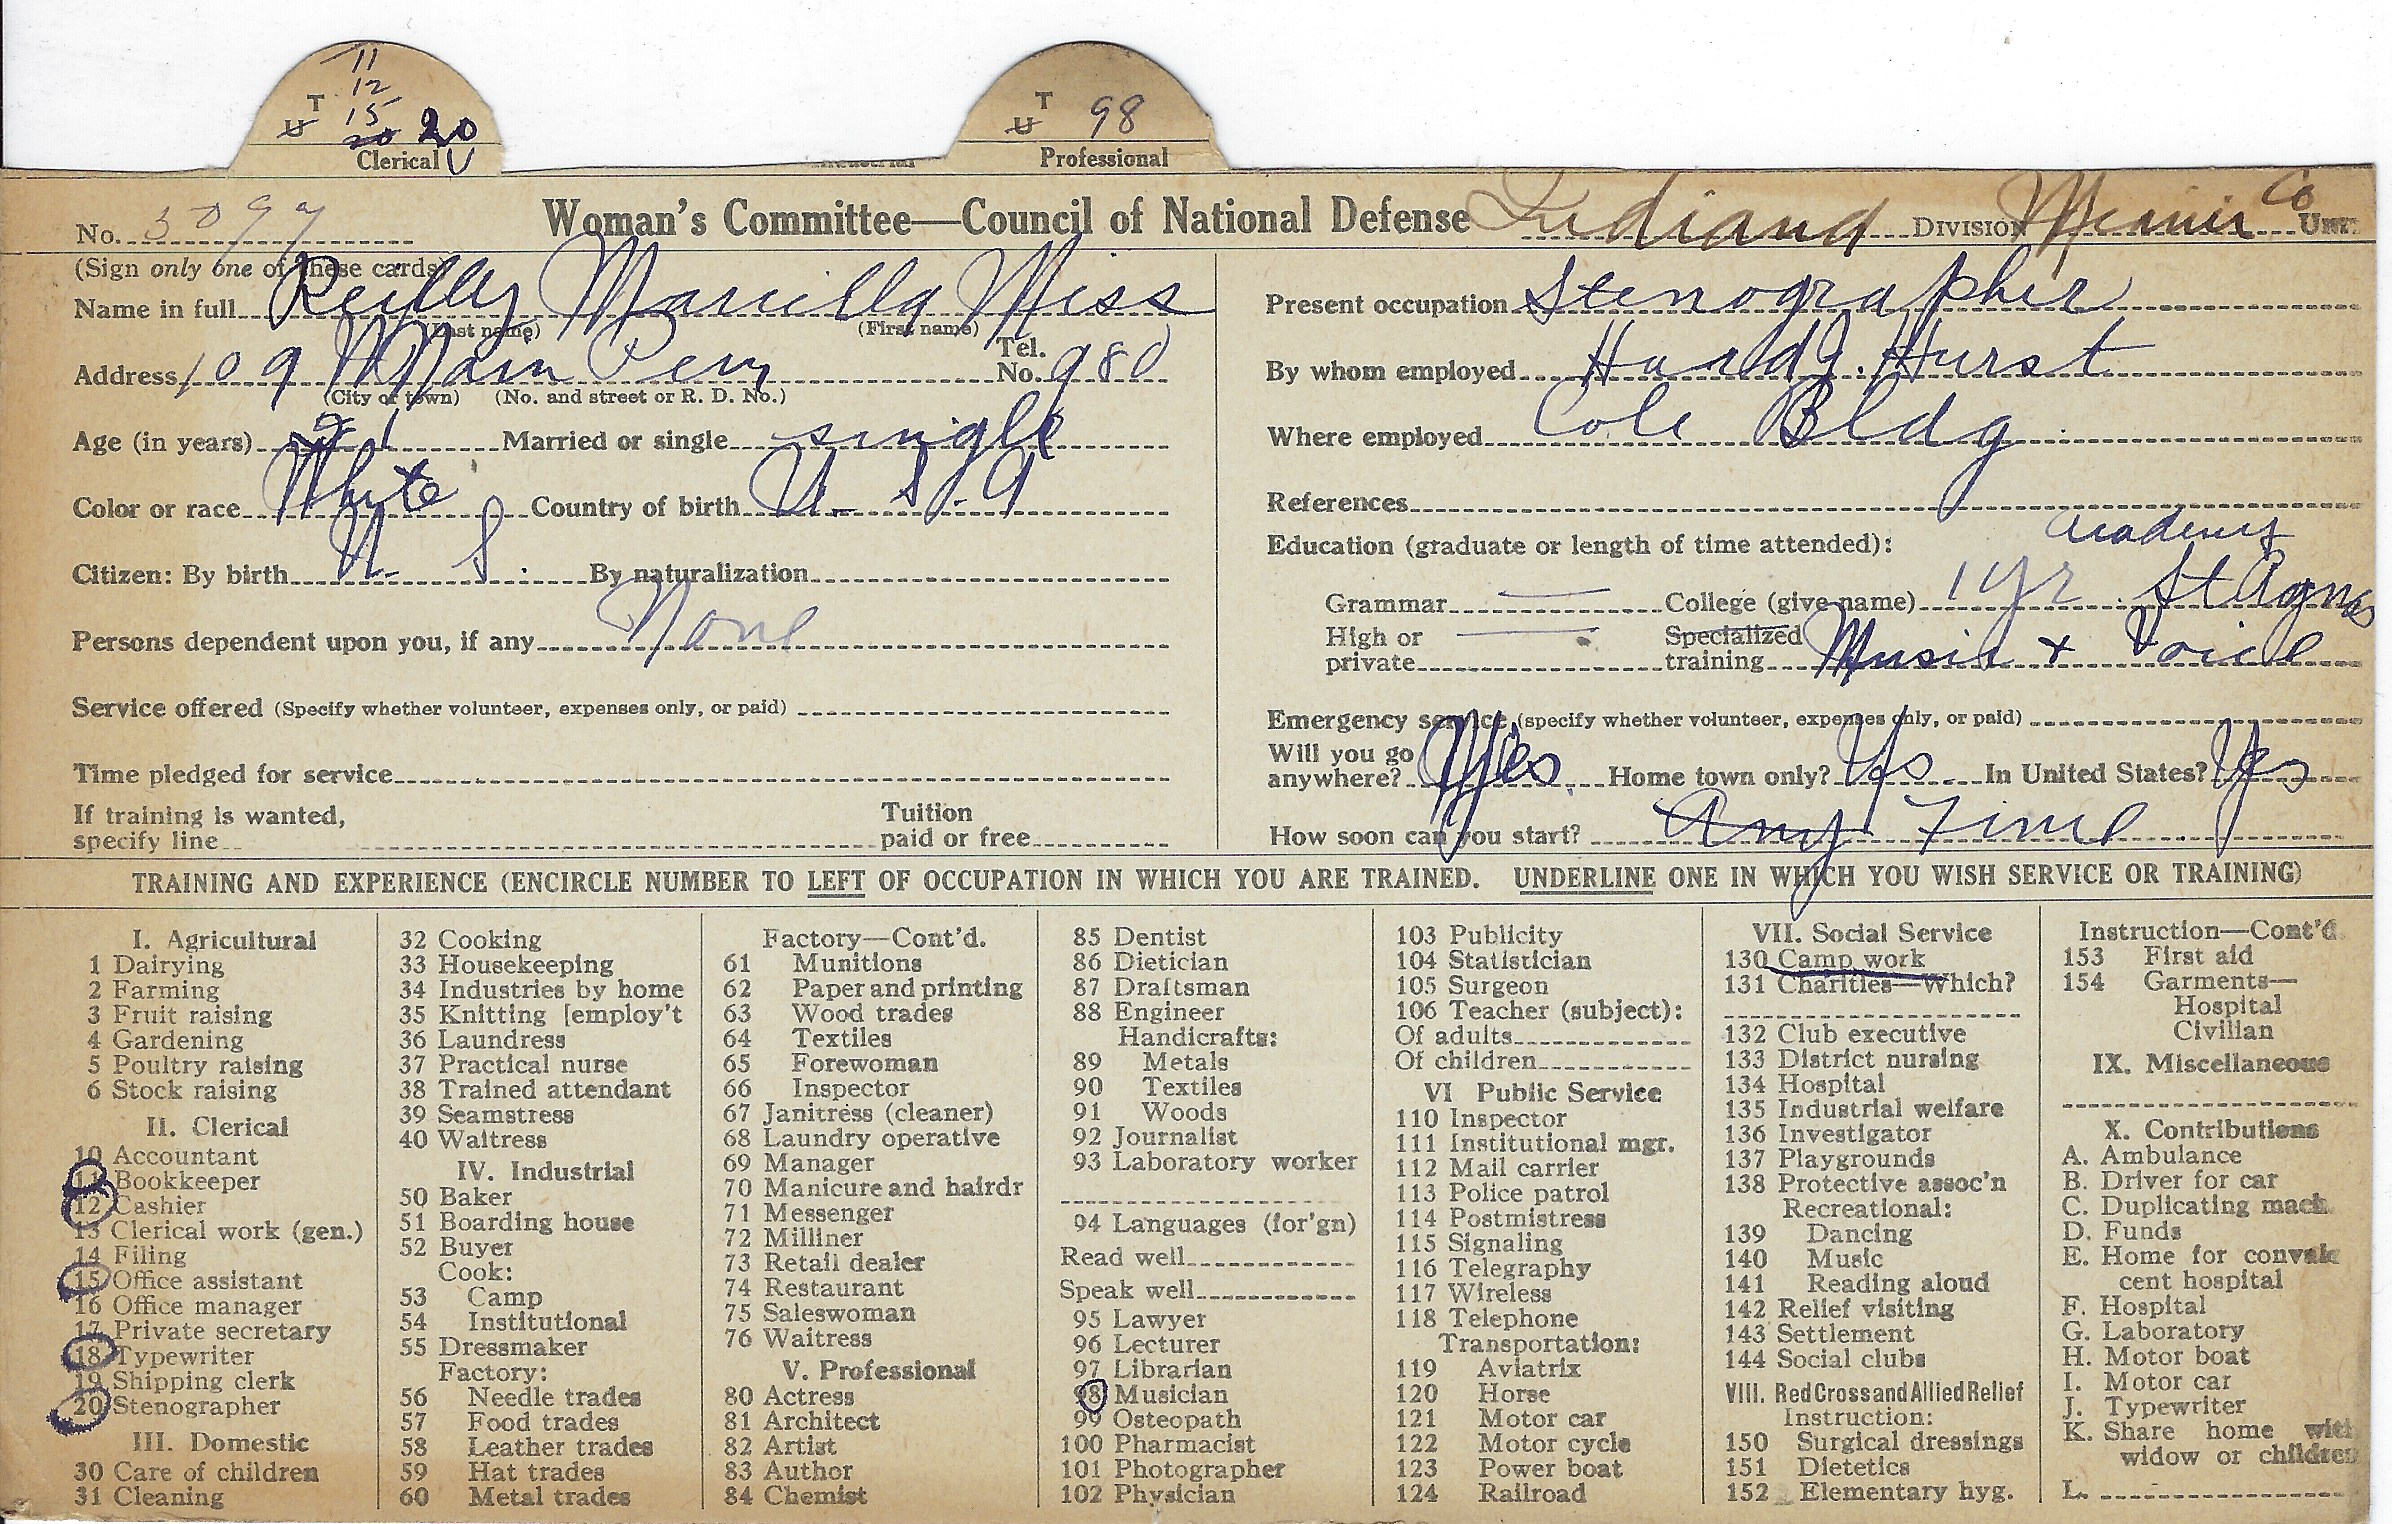 11
12
T 15
U 20 20
Clerical U
T 98
U
Professional
No. 3097 Woman's Committee—Council of National Defense Indiana DIVISION Miami Co UNIT
(Sign only one of these cards)
Name in full Reilly Marcella Miss
(Last name) (First name)
Address 109 N Main Peru Tel. No. 980
(City or town) (No. and street or R. D. No.)
Age (in years) 21 Married or single single
Color or race White Country of birth U. S. A
Citizen: By birth U. S. By naturalization
Persons dependent upon you, if any None
Service offered (Specify whether volunteer, expenses only, or paid)
Time pledged for service
If training is wanted, specify line Tuition paid or free
Present occupation Stenographer
By whom employed Hurst
Where employed Cole Bldg
References
Education (graduate or length of time attended): Academy
Grammar — College (give name) 1 yr St Agnes
High or private — Specialized training Music + Voice
Emergency service (specify whether volunteer, expenses only, or paid)
Will you go anywhere? Yes Home town only? Yes In United States? Yes
How soon can you start? Any Time
TRAINING AND EXPERIENCE (ENCIRCLE NUMBER TO LEFT OF OCCUPATION IN WHICH YOU ARE TRAINED. UNDERLINE ONE IN WHICH YOU WISH SERVICE OR TRAINING)
I. Agricultural
1 Dairying
2 Farming
3 Fruit raising
4 Gardening
5 Poultry raising
6 Stock raising
II. Clerical
10 Accountant
11 Bookkeeper
12 Cashier
13 Clerical work (gen.)
14 Filing
15 Office assistant
16 Office manager
17 Private secretary
18 Typewriter
19 Shipping clerk
20 Stenographer
III. Domestic
30 Care of children
31 Cleaning
32 Cooking
33 Housekeeping
34 Industries by home
35 Knitting [employ't
36 Laundress
37 Practical nurse
38 Trained attendant
39 Seamstress
40 Waitress
IV. Industrial
50 Baker
51 Boarding house
52 Buyer
Cook:
53 Camp
54 Institutional
55 Dressmaker
Factory:
56 Needle trades
57 Food trades
58 Leather trades
59 Hat trades
60 Metal trades
Factory—Cont'd.
61 Munitions
62 Paper and printing
63 Wood trades
64 Textiles
65 Forewoman
66 Inspector
67 Janitress (cleaner)
68 Laundry operative
69 Manager
70 Manicure and hairdr
71 Messenger
72 Milliner
73 Retail dealer
74 Restaurant
75 Saleswoman
76 Waitress
V. Professional
80 Actress
81 Architect
82 Artist
83 Author
84 Chemist
85 Dentist
86 Dietician
87 Draftsman
88 Engineer
Handicrafts:
89 Metals
90 Textiles
91 Woods
92 Journalist
93 Laboratory worker
94 Languages (for'gn)
Read well
Speak well
95 Lawyer
96 Lecturer
97 Librarian
98 Musician
99 Osteopath
100 Pharmacist
101 Photographer
102 Physician
103 Publicity
104 Statistician
105 Surgeon
106 Teacher (subject):
Of adults
Of children
VI Public Service
110 Inspector
111 Institutional mgr.
112 Mail carrier
113 Police patrol
114 Postmistress
115 Signaling
116 Telegraphy
117 Wireless
118 Telephone
Transportation:
119 Aviatrix
120 Horse
121 Motor car
122 Motor cycle
123 Power boat
124 Railroad
VII. Social Service
130 Camp work
131 Charities—Which?
132 Club executive
133 District nursing
134 Hospital
135 Industrial welfare
136 Investigator
137 Playgrounds
138 Protective assoc'n
Recreational:
139 Dancing
140 Music
141 Reading aloud
142 Relief visiting
143 Settlement
144 Social clubs
VIII. Red Cross and Allied Relief
Instruction:
150 Surgical dressings
151 Dietetics
152 Elementary hyg.
Instruction—Cont'd.
153 First aid
154 Garments—
Hospital
Civilian
IX. Miscellaneous
X. Contributions
A. Ambulance
B. Driver for car
C. Duplicating mach.
D. Funds
E. Home for convale
cent hospital
F. Hospital
G. Laboratory
H. Motor boat
I. Motor car
J. Typewriter
K. Share home with
widow or children
L.